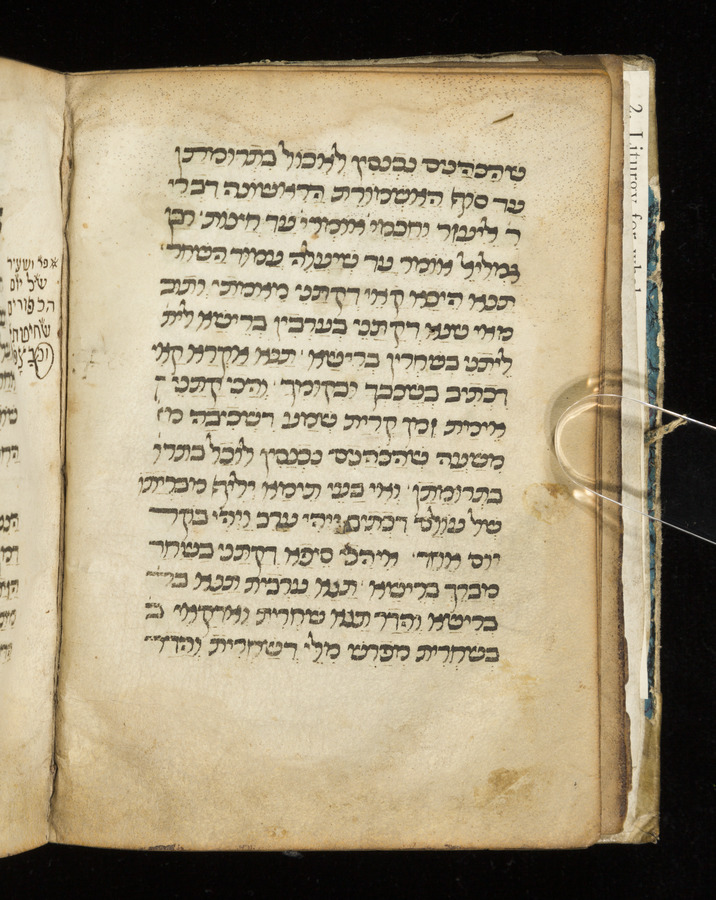 שהכהנים נכנסין לאכול בתרומתן
עד סוף האשמורת הראשונה דברי
ר ליעזר וחכמי' אומרי' עד חצות' רבן
גמליאל אומר עד שיעלה עמוד השחר
תנא היכא קאי דקתני מאמתי ותוב
מאי שנא דקתני בערבין ברישא לית
ליתני בשחרין ברישא' תנא אקרא קאי
דכתיב בשכבך ובקומך' והכי קתני
אימת זמן קרית שמע דשכיבה מ
משעה שהכהנים נכנסין לוכל בתרו
בתרומתן' ואי בעי' תימא יליף מבריתו
של עולם דכתיב ויהי ערב ויהי בקר
יום אחד' אי הכי סיפא דקתני בשחר
מברך ברישא' תנא ערבית תנא בר
ברישא והדר תנא שחרית ואדקאי ב
בשחרית מפרש מילי דשחרית והדר
אפר ושעיר
של יום
הכפורים
שחיטתו